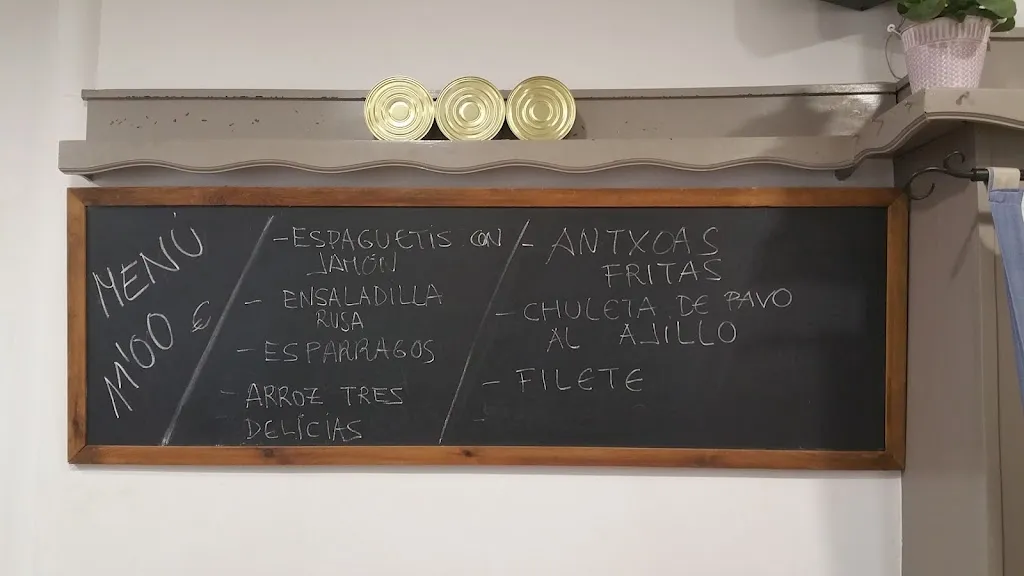 MENÚ
11'00 €
- ESPAGUETIS CON
JAMÓN
- ENSALADILLA
RUSA
- ESPARRAGOS
- ARROZ TRES
DELÍCIAS
- ANTXOAS
FRITAS
- CHULETA DE PAVO
AL AJILLO
- FILETE